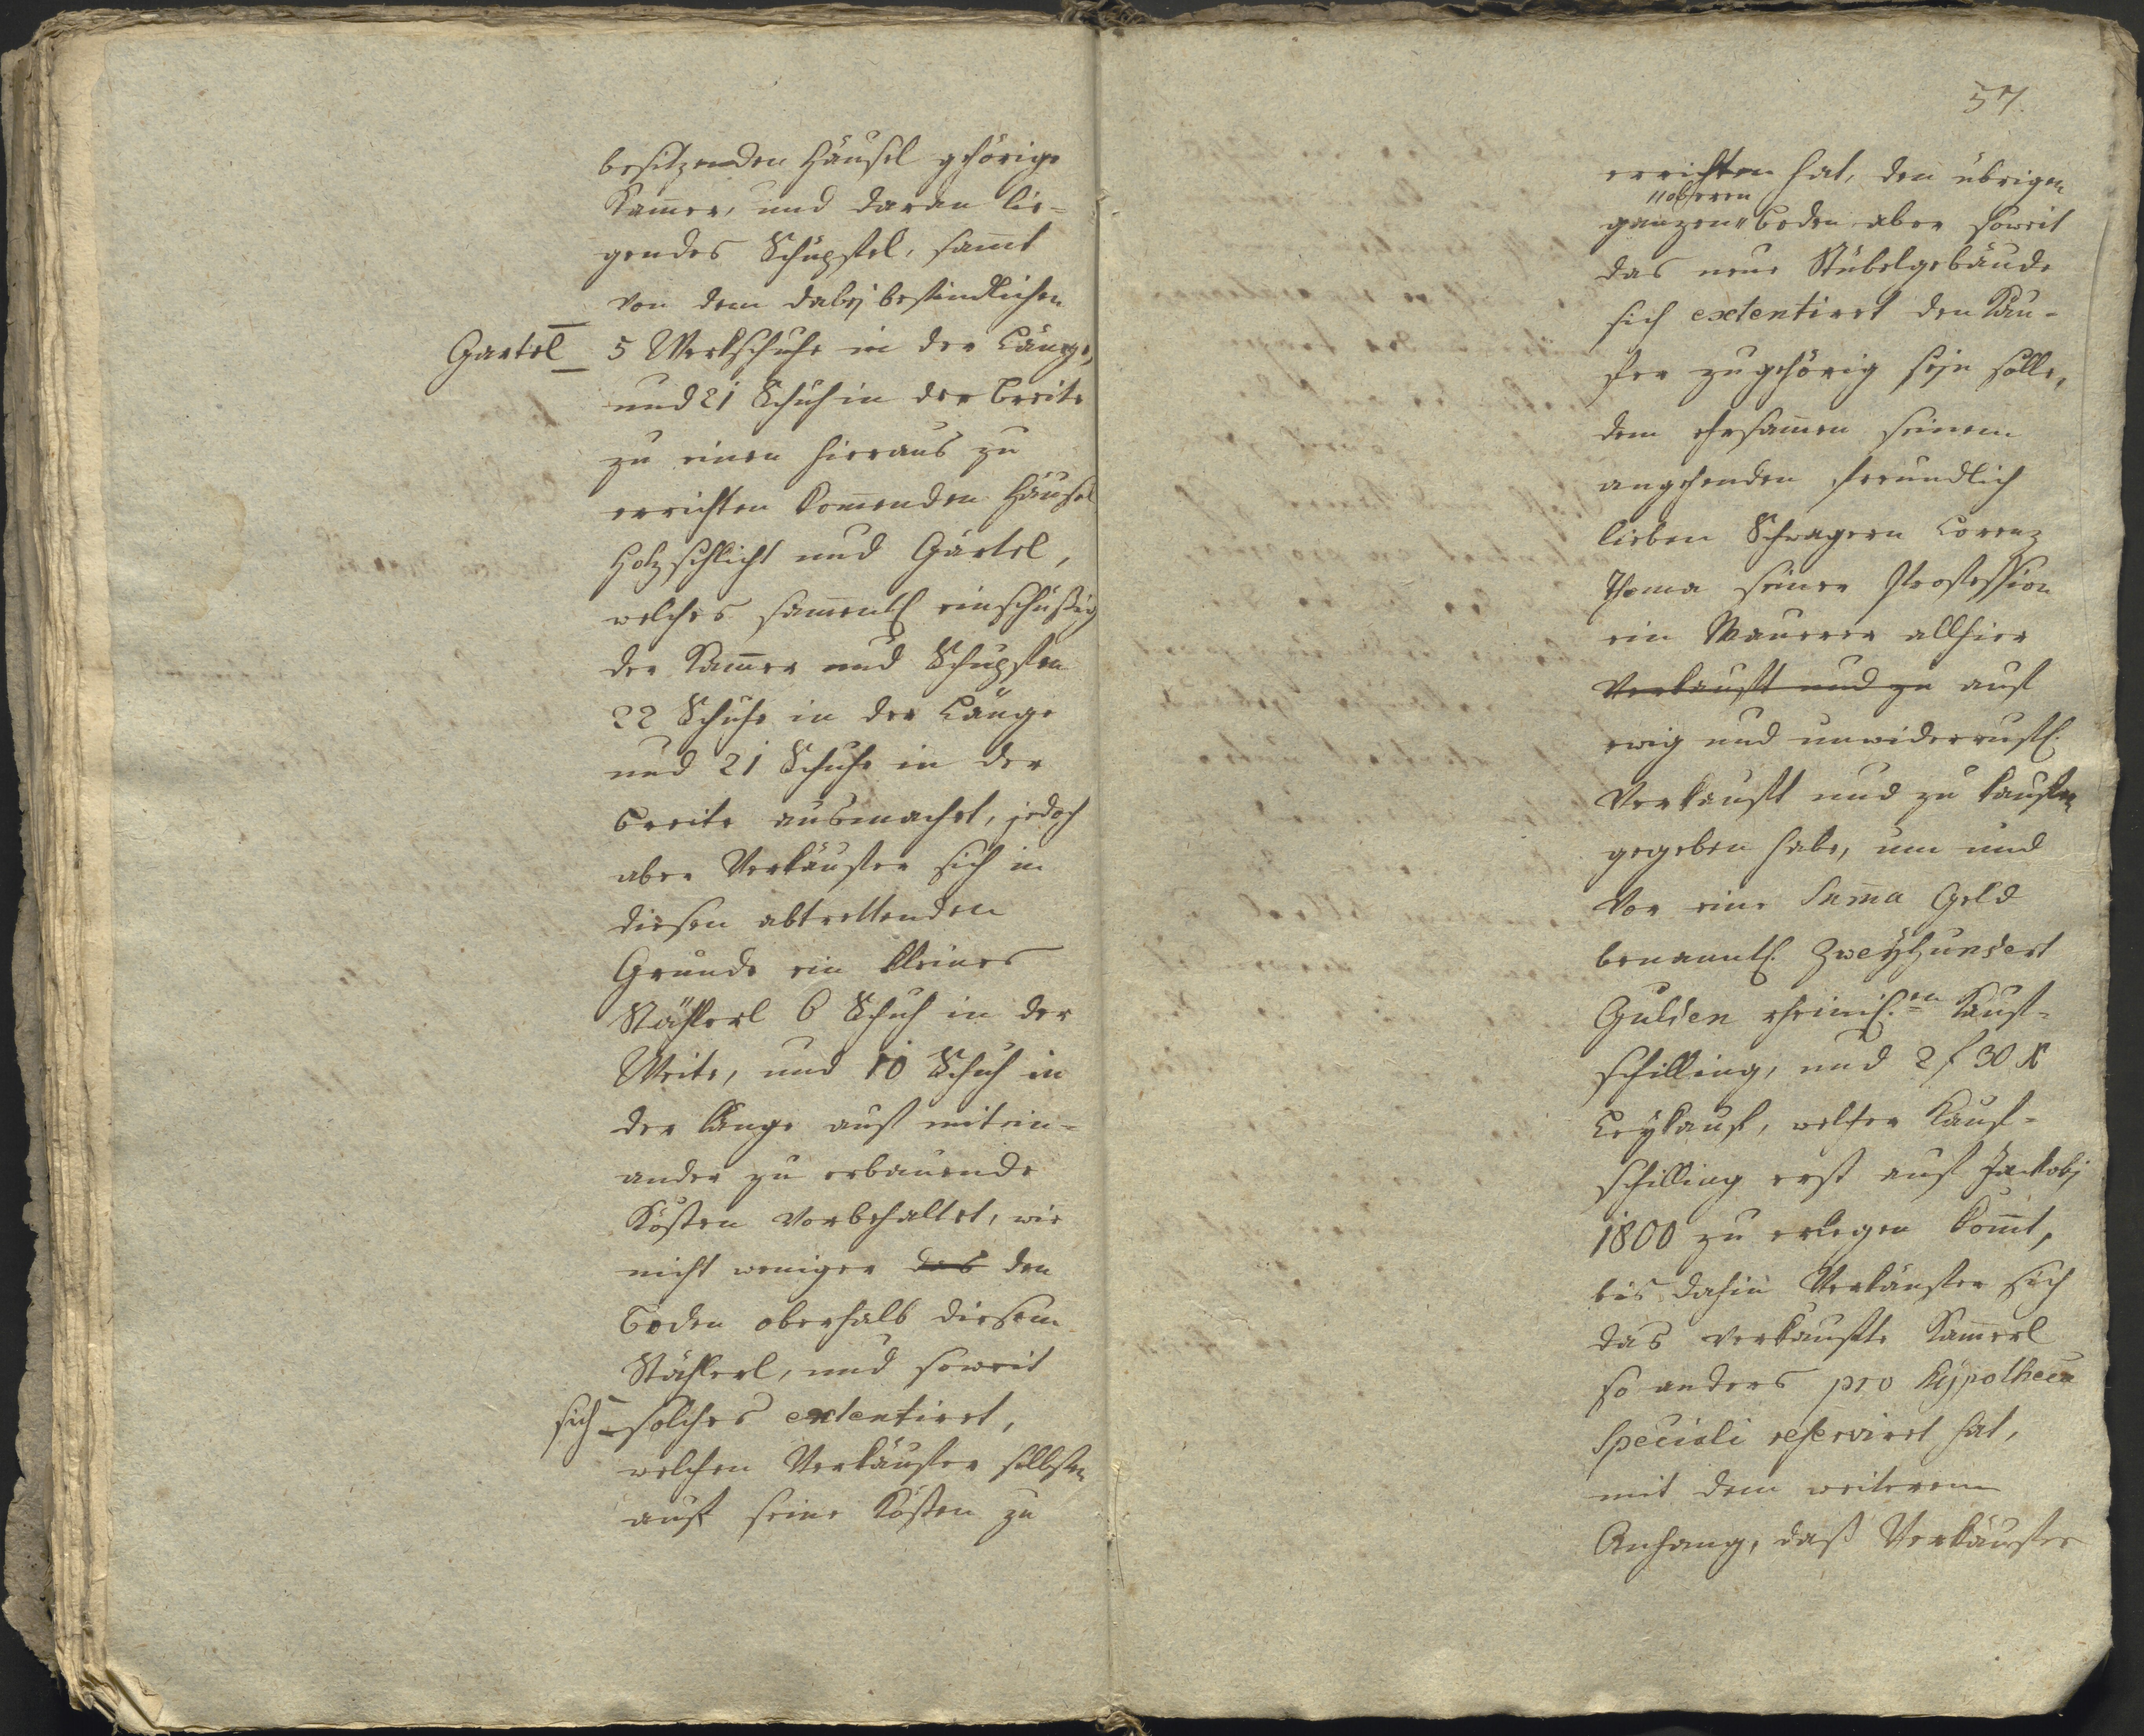 besitzenden Häusel gehörige
Kam̅er, und daran lie-
gendes Schupfel, sam̅t
von dem dabej befindlichen
Gartel 5 Werkschuhe in der Länge,
und 21 Schuh in der Breite
zu einen hieraus zu
errichten kom̅enden Häusel
Holzschlicht und Gärtel,
welches sam̅entl: einschüßig
der Kam̅er und Schupfen
22 Schuhe in der Länge
und 21 Schuhe in der
Breite ausmachet, jedoch
aber Verkäufer sich in
diesen abtrettenden
Grunde ein kleines
Stüherl 6 Schuh in der
Weite, und 10 Schuh in
der Länge auf mitein-
ander zu erbauende
Kösten vorbehaltet, wie
nicht weniger das den
Boden oberhalb diesem
Stüherl, und soweit
sich solches extentiret,
welchen Verkäufer selbsten
auf seine Kösten zu
57.
errichten hat, den übrigen
"oberen
ganzen" Boden aber soweit
das neue Stübelgebäude
sich extentiret den Käu-
fer zugehörig sejn solle,
dem ehrsam̅en seinem
angehenden freundlich
lieben Schwagern Lorenz
Thoma seiner Profession
ein Maurer allhier
Verkauft und zu auf
ewig und unwiderrufl:
Verkauft und zu kaufen
gegeben habe, um und
vor eine Sum̅a Geld
benanntl: Zweyhundert
Gulden rheinl:en Kauf-
schilling, und 2 f 30 x
Leykauf, welcher Kauf-
schilling erst auf Jackobj
1800 zu erlegen kom̅t,
bis dahin Verkäufer sich
das verkaufte Kam̅erl
so anders pro hypotheca
speciali reserviret hat,
mit dem weiterem
Anhang, daß Verkäufer